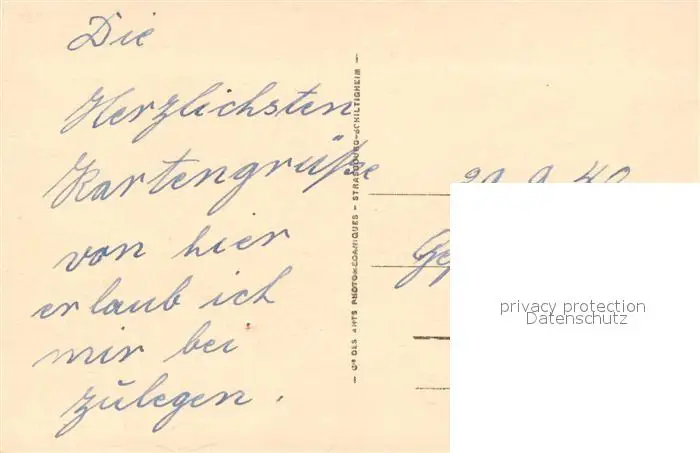 Die
Herzlichsten
Kartengrüße
von hier
erlaub ich
mir bei
zulegen.
— Cie DES ARTS PHOTOMÉCANIQUES — STRASBOURG-SCHILTIGHEIM —
privacy protection
Datenschutz